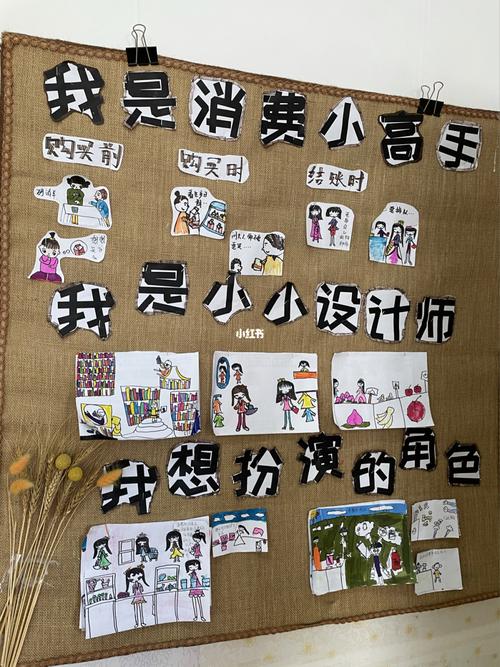 我是消费小高手
购买前
购买时
结账时
我是小小设计师
小红书
我想扮演的角色